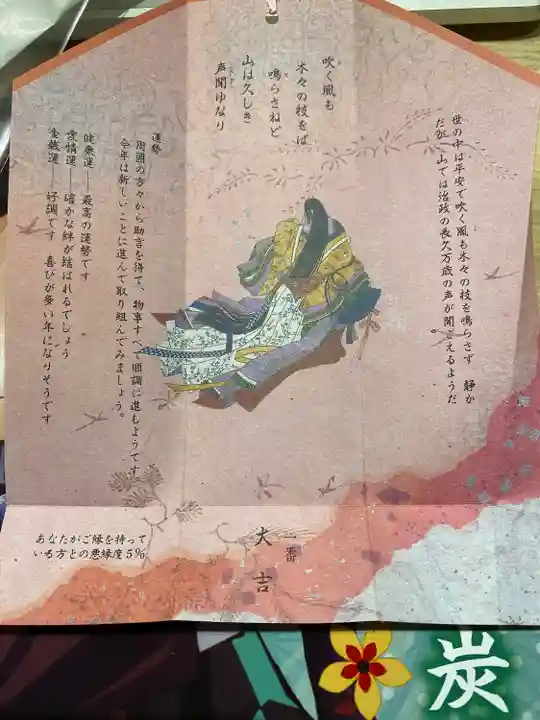 世の中は平安で吹く風も木々の枝を鳴らさず　静か
だが、山では治政の長久万歳の声が聞こえるようだ
吹く風も
木々の枝をば
鳴らさねど
山は久しき
声聞ゆなり
運勢
周囲の方々から助言を得て、物事すべて順調に進むようです。
今年は新しいことに進んで取り組んでみましょう。
健康運――最高の運勢です
愛情運――確かな絆が結ばれるでしょう
金銭運――好調です　喜びが多い年になりそうです
一番
大吉
あなたがご縁を持って
いる方との悪縁度5%
炭